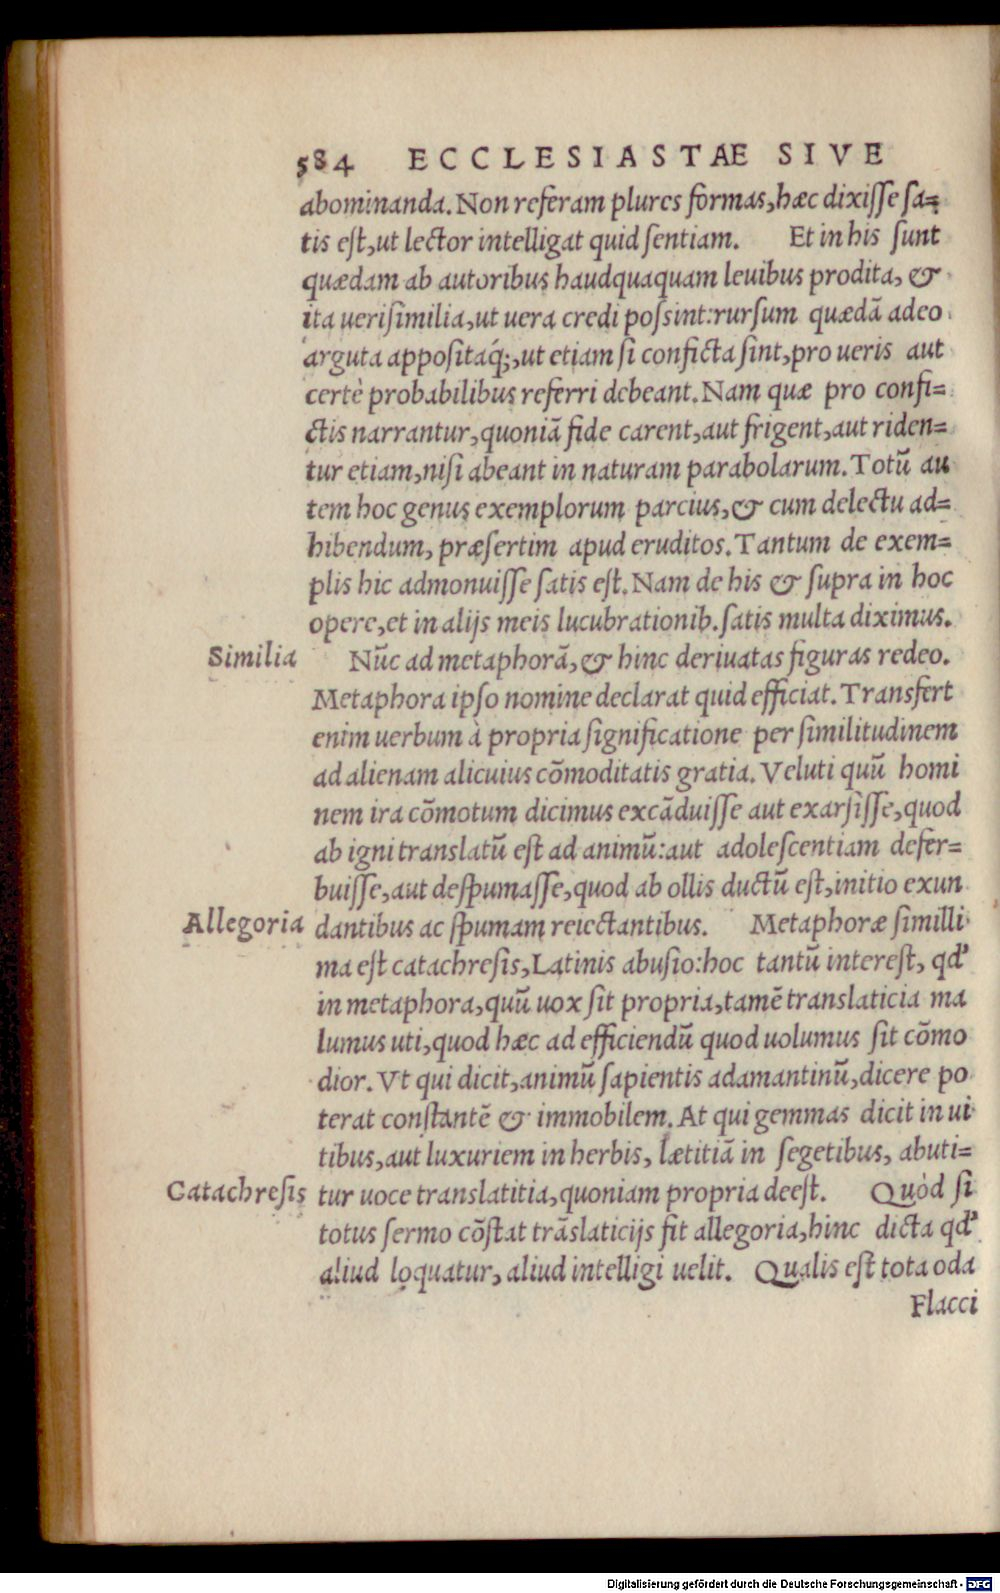 584 ECCLESIASTAE SIVE
abominanda. Non referam plures formas, hæc dixisse sa=
tis est, ut lector intelligat quid sentiam. Et in his sunt
quædam ab autoribus haudquaquam leuibus prodita, &
ita uerisimilia, ut uera credi possint: rursum quædã adeo
arguta appositaq́;, ut etiam si conficta sint, pro ueris aut
certè probabilibus referri debeant. Nam quæ pro confi=
ctis narrantur, quoniã fide carent, aut frigent, aut riden=
tur etiam, nisi abeant in naturam parabolarum. Totũ au
tem hoc genus exemplorum parcius, & cum delectu ad=
hibendum, præsertim apud eruditos. Tantum de exem=
plis hic admonuisse satis est. Nam de his & supra in hoc
opere, et in alijs meis lucubrationib. satis multa diximus.
Similia Nũc ad metaphorã, & hinc deriuatas figuras redeo.
Metaphora ipso nomine declarat quid efficiat. Transfert
enim uerbum à propria significatione per similitudinem
ad alienam alicuius cõmoditatis gratia. Veluti quũ homi
nem ira cõmotum dicimus excãduisse aut exarsisse, quod
ab igni translatũ est ad animũ: aut adolescentiam defer=
buisse, aut despumasse, quod ab ollis ductũ est, initio exun
Allegoria dantibus ac spumam reiectantibus. Metaphoræ simili
ma est catachresis, Latinis abusio: hoc tantũ interest, qd'
in metaphora, quũ uox sit propria, tamẽ translaticia ma
lumus uti, quod hæc ad efficiendũ quod uolumus sit cõmo
dior. Vt qui dicit, animũ sapientis adamantinũ, dicere po
terat constantẽ & immobilem. At qui gemmas dicit in ui
tibus, aut luxuriem in herbis, lætitiã in segetibus, abuti=
Catachresis tur uoce translatitia, quoniam propria deest. Quòd si
totus sermo cõstat trãslaticijs fit allegoria, hinc dicta qd'
aliud loquatur, aliud intelligi uelit. Qualis est tota oda
Flacci
Digitalisierung gefördert durch die Deutsche Forschungsgemeinschaft - DFG